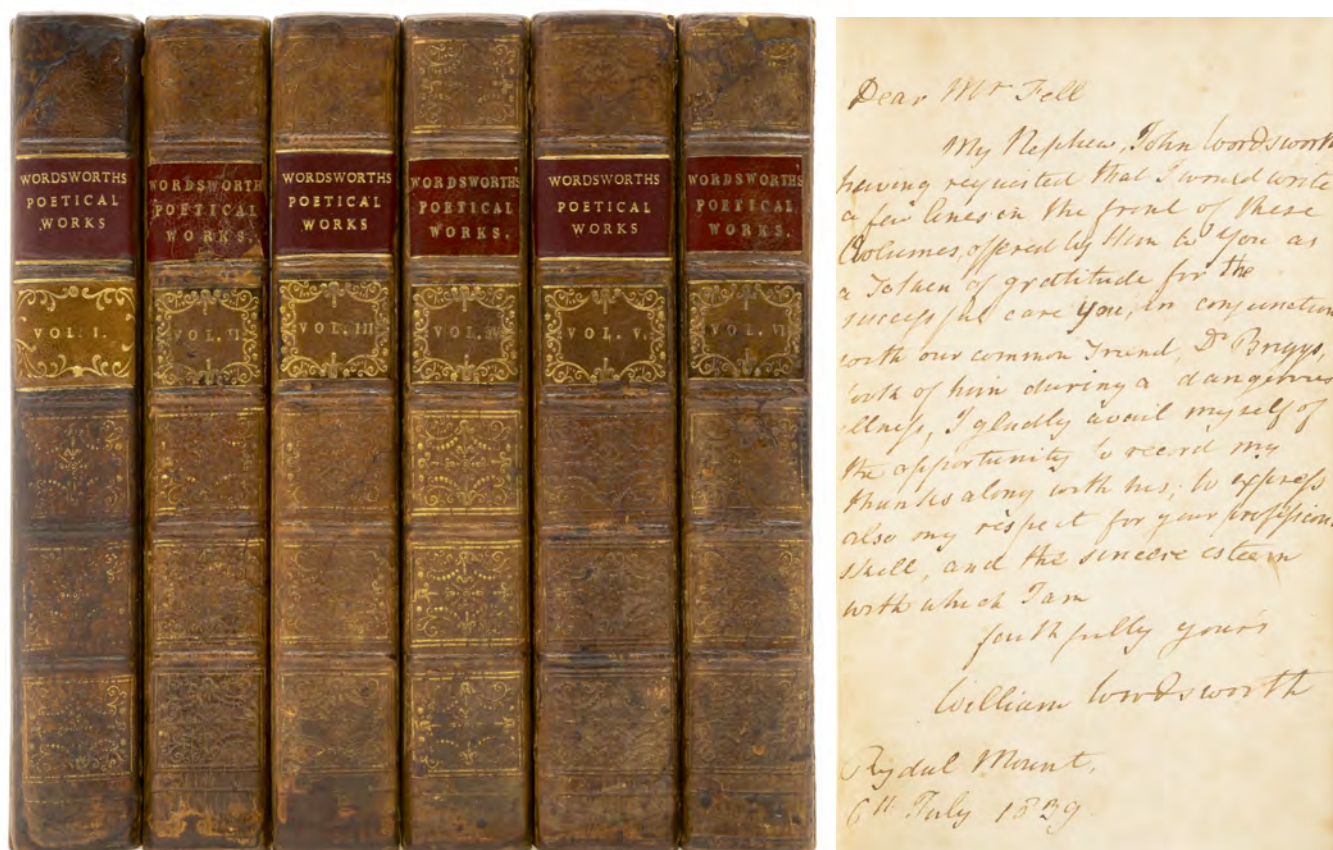 WORDSWORTHS
POETICAL
WORKS
VOL. I.
WORDSWORTHS
POETICAL
WORKS.
VOL. II
WORDSWORTHS
POETICAL
WORKS
VOL. III
WORDSWORTHS
POETICAL
WORKS.
VOL. IV
WORDSWORTHS
POETICAL
WORKS
VOL. V.
WORDSWORTHS
POETICAL
WORKS.
VOL. VI
Dear Mr Fell
My Nephew, John Wordsworth
having requested that I would write
a few lines in the front of these
Volumes, offered by Him to You as
a Token of gratitude for the
successful care you, in conjunction
with our common Friend, Dr Briggs,
took of him during a dangerous
illness, I gladly avail myself of
the opportunity to record my
thanks along with his; to express
also my respect for your profession
skill, and the sincere esteem
with which I am
faithfully yours
William Wordsworth
Rydal Mount,
6th July 1839.